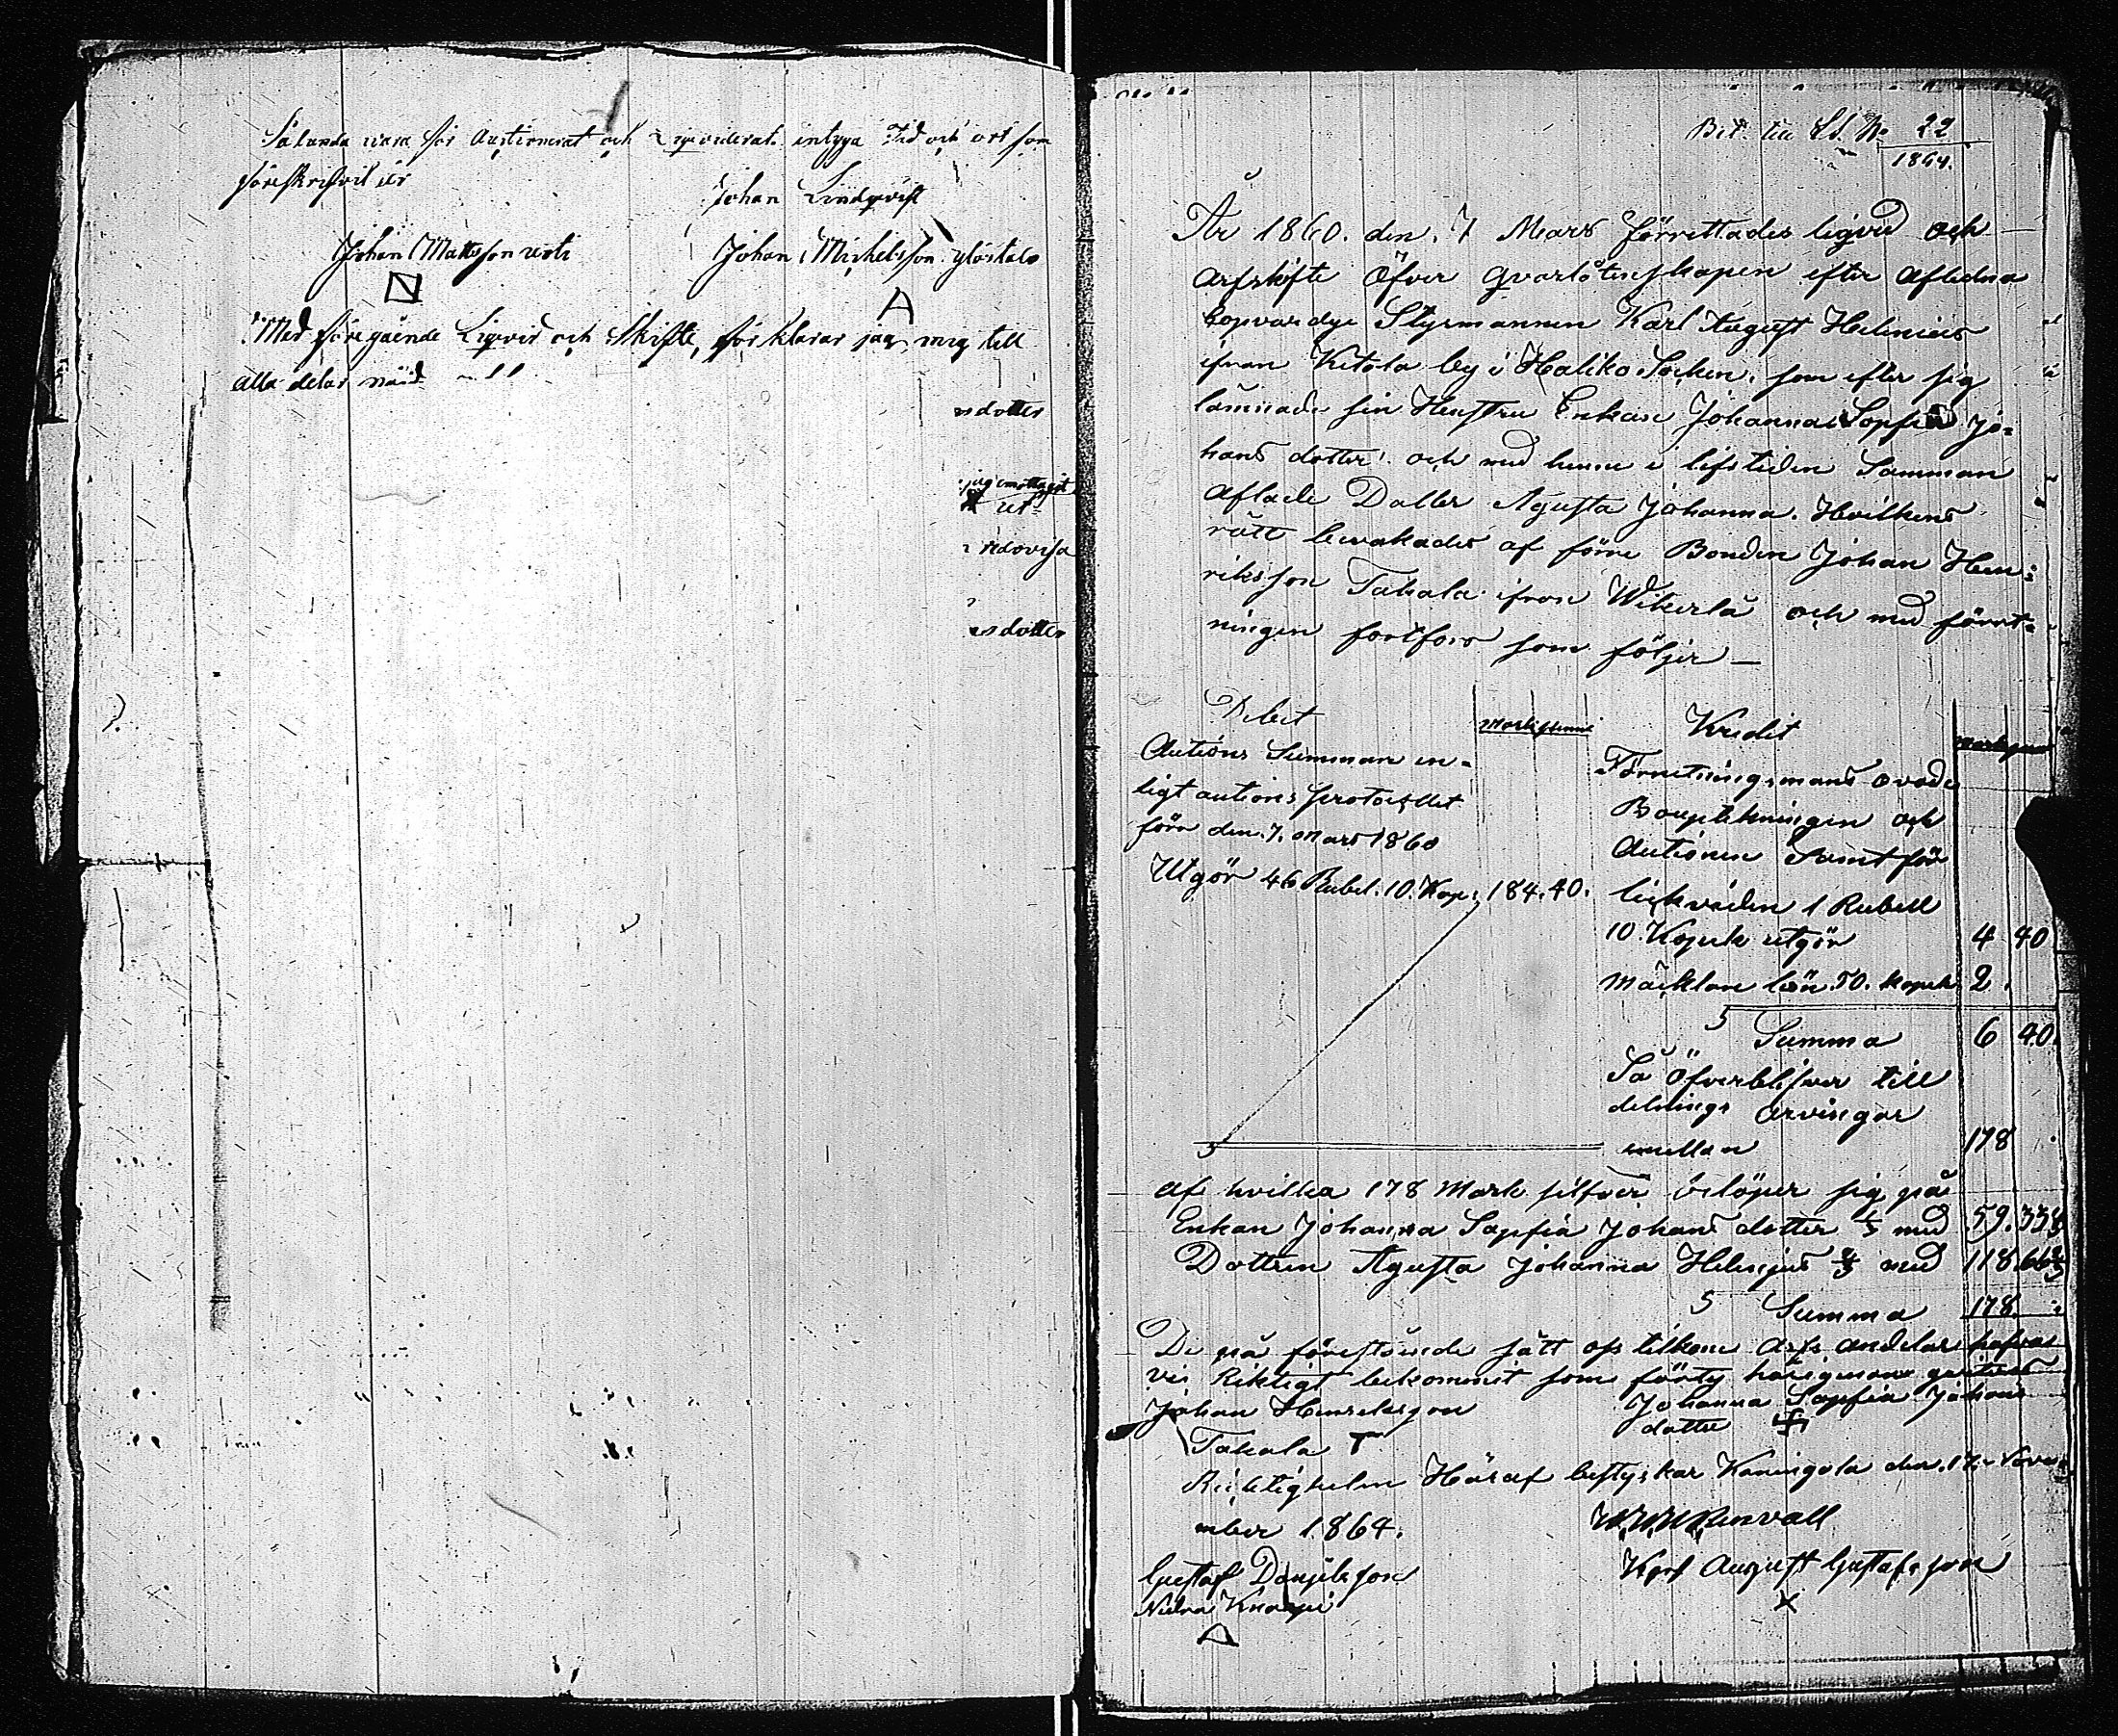 Sålunda vara för Auctionerat och Liqviderat intyga Tid och ort som
föreskrefvit är
Johan Lindqvist
Johan Mattsson
Johan Michelsson
A
Med föregående Liqvid och Skifte, förklarar jag mig till
alla delar nöid
sdotter
jag emottagit
redovisa
sdotter
Bil. till No 22
1864.
År 1860. den. 7 Mars förrettades liqvid och
arfskifte Öfver qvarlåtenskapen efter Afledna
Copvardye Styrmannen Karl August Helenius
ifron Ketola by i Haliko Socken. som efter sig
lämnade sin Hustru Enkan Johanna Sopfia Jo=
hans dotter och med henne i lifstiden Samman
aflade Dotter Agusta Johanna. Hvilkens
rätt bevakades af förre Bonden Johan Hen=
riksson Takala ifron Wikerlä och med förret=
ningen fortfors som följer —
Debet
Mark penni
Kredit
Mark penni
Autions Summan en=
ligt autions protocollet
förr den. 7. Mars 1860
Utgör 46 Rubel. 10. Kop. 184. 40.
Förretningsmans
Bouptekningen och
Autionen Samt för
likviden 1 Rubell
10. Kopek utgör 4 40
Mäcklare lön 50. kopek 2.
Summa 6 40.
Så Öfverblifver till
delnings arvingar
mellan 178
af hvilka 178 Mark silfver belöper sig på
Enkan Johanna Sopfia Johans dotter 1/3 med 59. 33 1/3
Dottren Agusta Johanna Helenjus 2/3 med 118. 66 2/3
Summa 178.
De på förestående sätt oss tilkone Arfs andelar hafva
vii Riktigt bekommit som förty härigenom qvitteras
Johan Henrekson
Johanna Sopfia Johans
dotter
Takala T
Ricktigheten Häraf bestyrkar Kaningola den. 17. Nove=
mber 1864.
Renvall
Gustaf Danjelsson
Karl August Gustafsson
Knaapi
X